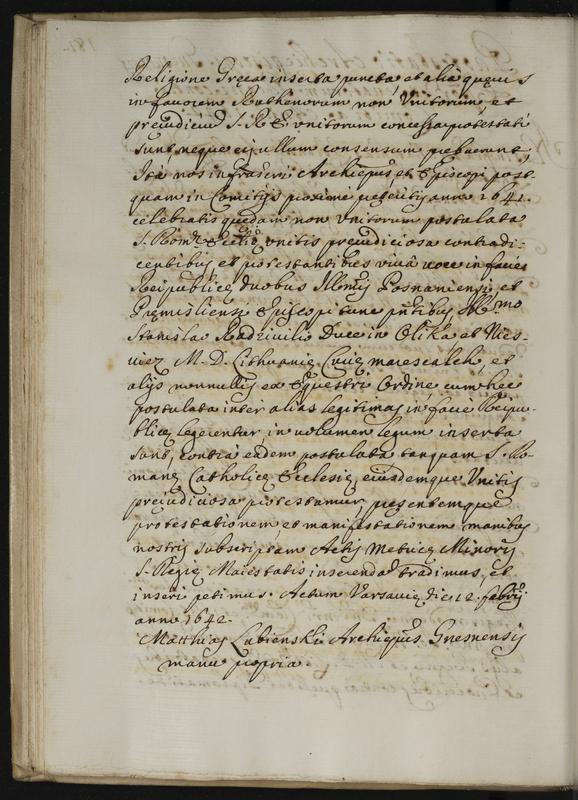 Religione Gręca inserta puncta et alia quęvis
in favorem Ruthenorum non Vnitorum, et
preiudiciũ S. R. E. vnitorum concessa protestati
sunt neque eis ullum consensum prębuerunt
Ita nos infrascri Archiepũs et Episcopi post-
quam in Comitijs proxime pręteritis anni 1641.
celebratis quędam non Vnitorum postulata
S. Romę Ecclię vnitis preiudiciosa contradi-
centibus et protestantibus viva voce in facie
Reipublicę duobus Illmis Posnaniensi et
Pręmisliensi Episcopis tunc pñtibus Illmo
Stanislao Radzivilio Duce in Olika et Nies-
wiez M. D. Lithuanię Curię marescalch, et
alijs nonnullis ex Equestri Ordine cum hęc
postulata inter alias legitimas in facie Reipu-
blicę legerentur, in volumen legum inserta
sunt, contra eadem postulata tanquam S. Ro-
manę Catholicę Ecclesię, eiusdemque Vnitis
preiudiciosa protestamur, pręsentemque
protestationem et manifestationem manibus
nostris subscriptam Actis Metricę Minoris
S. Regię Maiestatis inserendã tradimus, et
inseri petimus. Actum Varsavię die 12. febrij
anno 1642.
Matthias Lubienski Archiepũs Gnesnensis
manu propria.